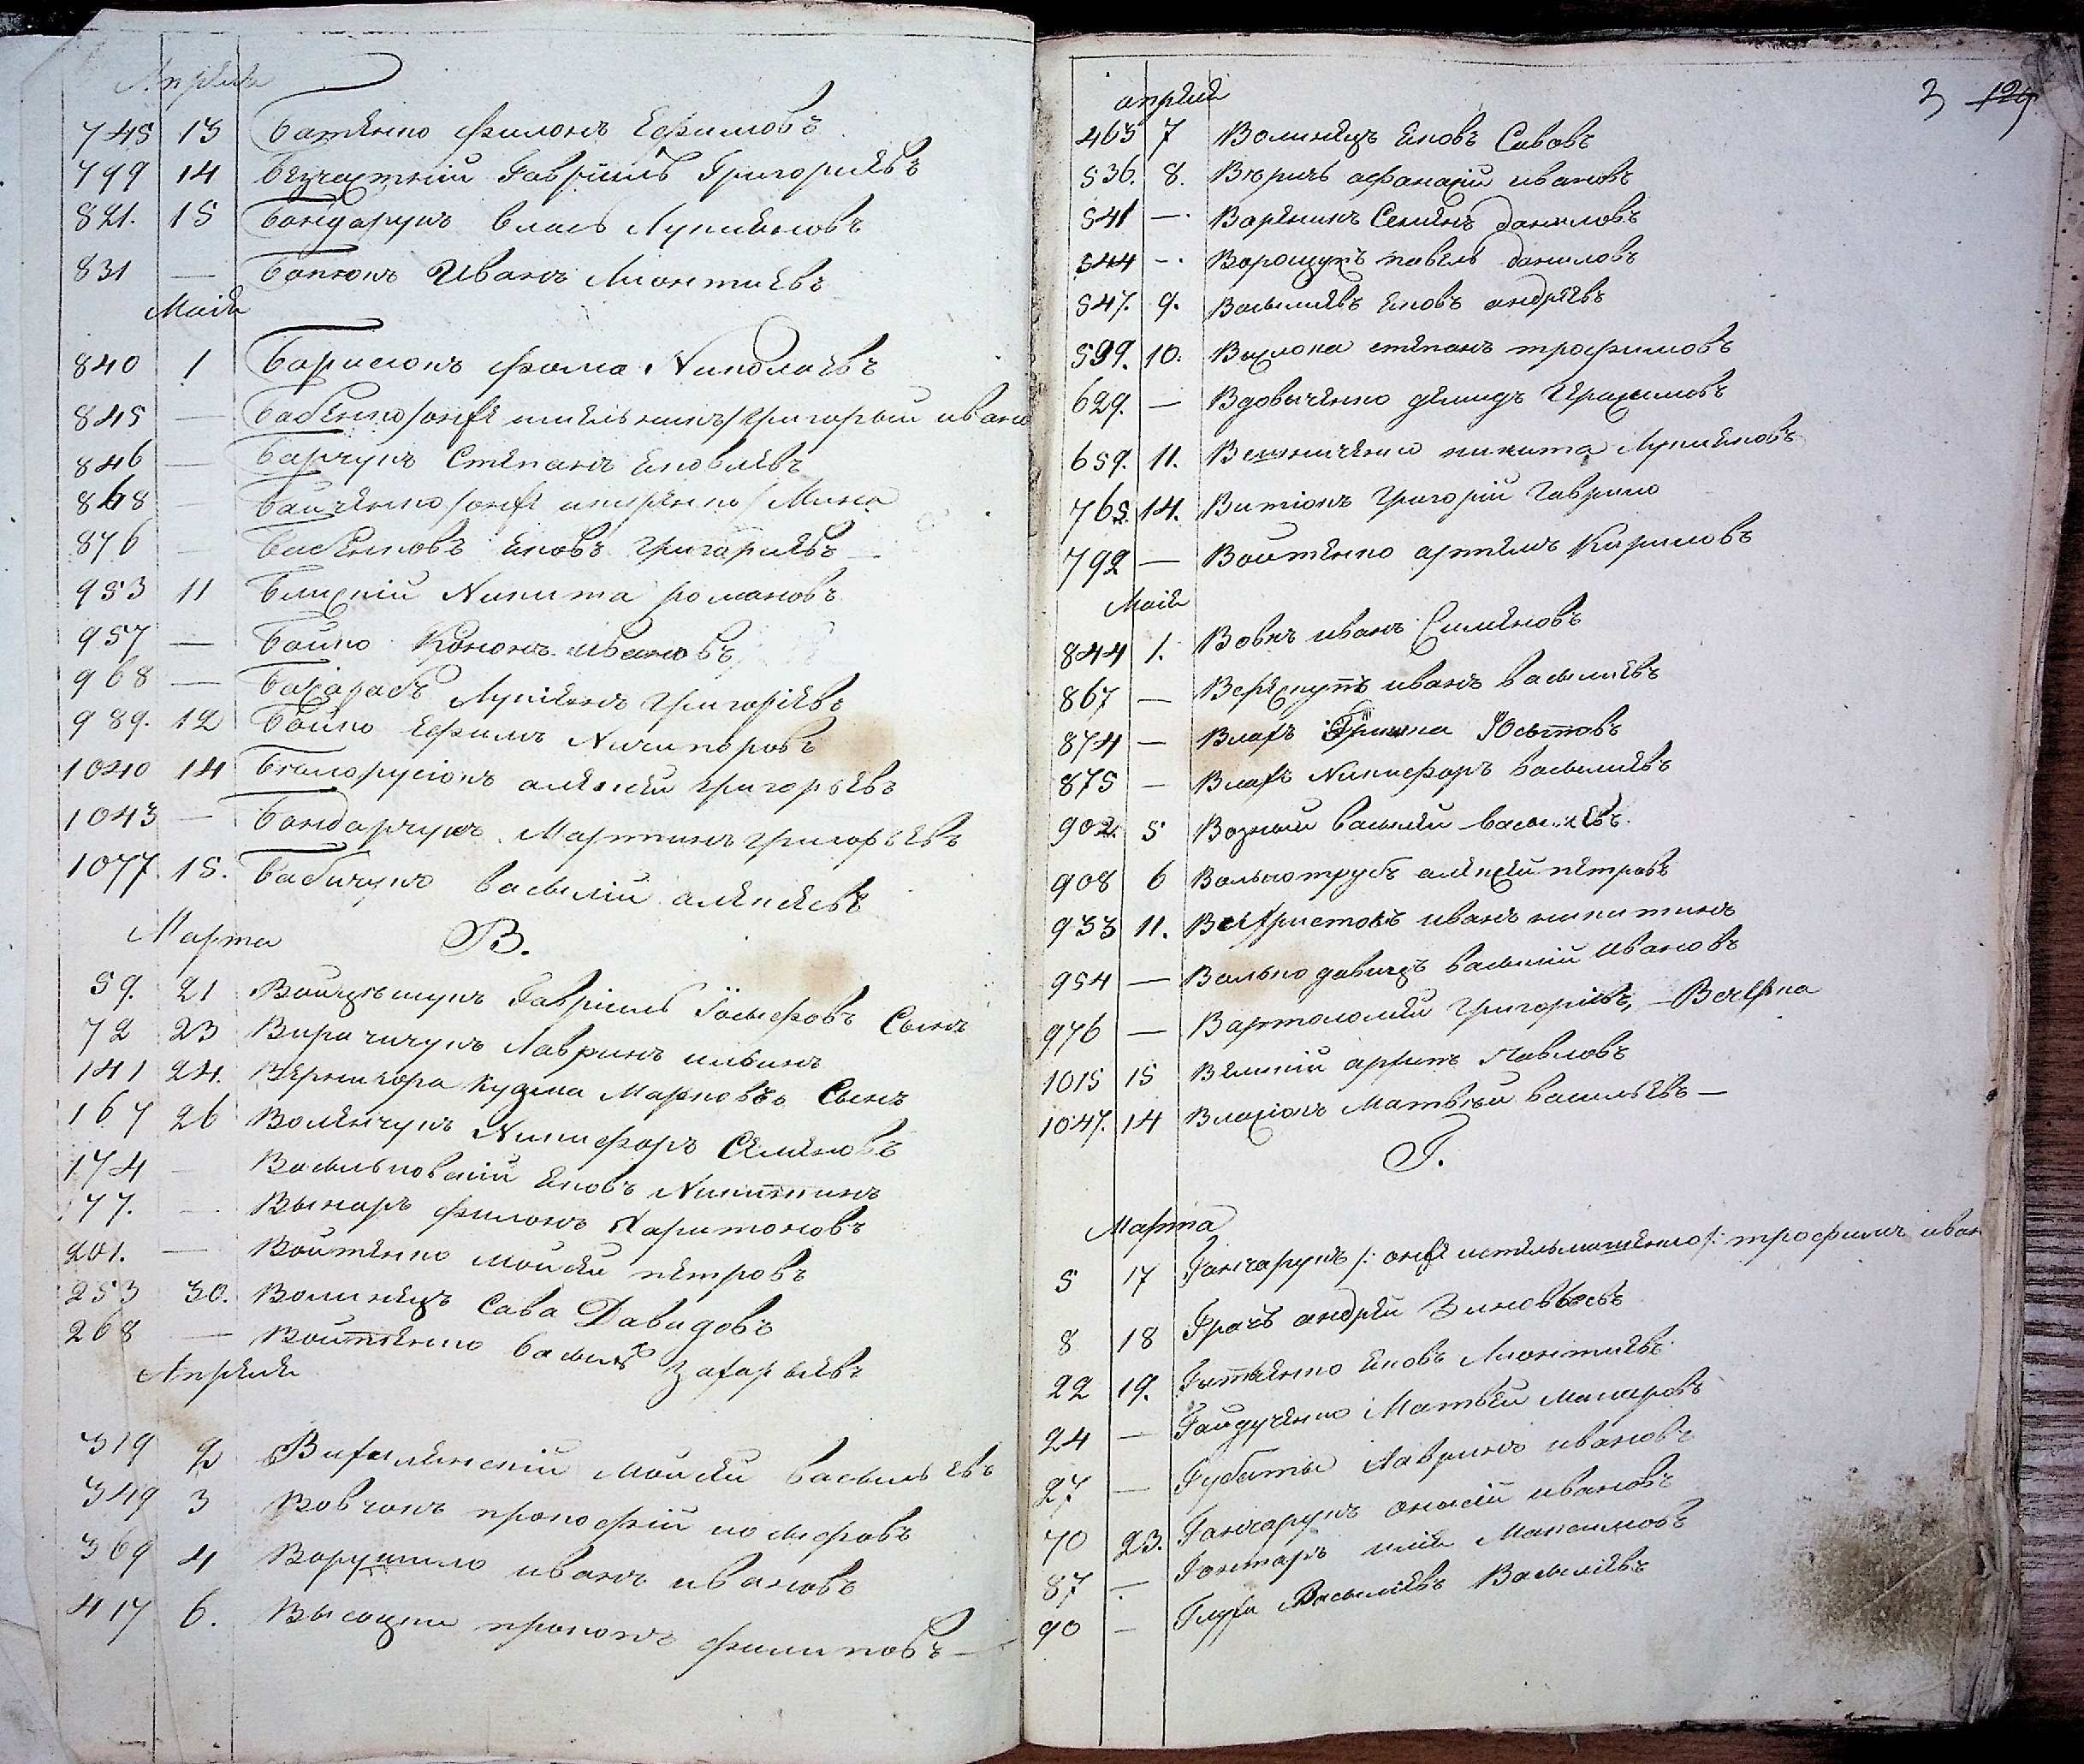 Апреля
745 13 Батенко Филонъ Ефимовъ
799 14 Безчастний Гавріилъ Григориевъ
821. 15 Бондарукъ Власъ Лукияновъ
831 — Банюкъ Иванъ Лионтиевъ
Маія
840 1 Барисюкъ Фома Николаевъ
845 — Бабенко /онже мисльникъ/ Григорый ивано
846 — Барчукъ Степанъ Яковлевъ
868 — Байченко /онже / Мина
876 — Бабенковъ Яковъ Григориевъ —
953 11 Близкій Никита романовъ
957 — Бойко Кононъ ивановъ
968 — Лукіянъ Григоріевъ
989. 12 Бойко Ефимъ Ничипоровъ
1040 14 Бѣлорусюкъ алексѣй григорьевъ
1043 — Бондарчукъ Мартинъ григорьевъ
1077. 15. Бабичукъ василій алексѣевъ
Марта В.
59. 21 Войцѣшукъ Гавріилъ Іосифовъ Сынъ
72 23 Виричичукъ Лавринъ ильинъ
141 24. Вернигора Кузма Марковъ Сынъ
167 26 Воленчукъ Никифоръ Семеновъ
174 — Васильковскій Яковъ Никитинъ
177. — Вынаръ Филонъ Харитоновъ
201. — Войтенко мойсей петровъ
253 30. Волинецъ Сава Давидовъ
268 — Войтенко василь Захарыевъ
Апреля
319 2 мойсей васильевъ
349 3 Вовчокъ прокофій иосифовъ
369 4 Ворушило иванъ ивановъ
417 6. Высоцки прокопъ филиповъ —
3 129
апреля
463 7 Волинецъ Яковъ Савовъ
536. 8. афанасій ивановъ
541 —. Вареникъ Семенъ даниловъ
544 —. Ворощукъ павелъ даниловъ
547. 9. Васылиевъ Яковъ андреевъ
599. 10. степанъ трофимовъ
629. — Вдовыченко демидъ Герасимовъ
659. 11. никита Лукияновъ
765. 14. Витюкъ Григорій гаврило
792 — Войтенко артемъ Кириловъ
Маія
844 1. Вовкъ иванъ Симяновъ
867 — иванъ васылиевъ
874 — Влахъ Юсыповъ
875 — Влахъ Никифоръ васылиевъ
902. 5 Возный василий васылиевъ
908 6 Вольнотрубъ алексей петровъ
933 11. иванъ никитинъ
954 — Вольнодавидъ василий Ивановъ
976 — Вартоломей григоріевъ, —
1015 15 Великій архипъ Павловъ
1047. 14 Власюкъ Матвѣй васильевъ —
Г.
Марта
5 17 Гончарукъ /: онже :/ трофимъ иван
8 18 Грачъ андрей Зиновьевъ
22 19. Яковъ Лионтиевъ
24 — Гайдученко Матвѣй макаровъ
27 — Губаты Лавринъ ивановъ
70 23. Гончарукъ онисій ивановъ
87 — Гонтаръ илія Максимовъ
90 — Васылиевъ